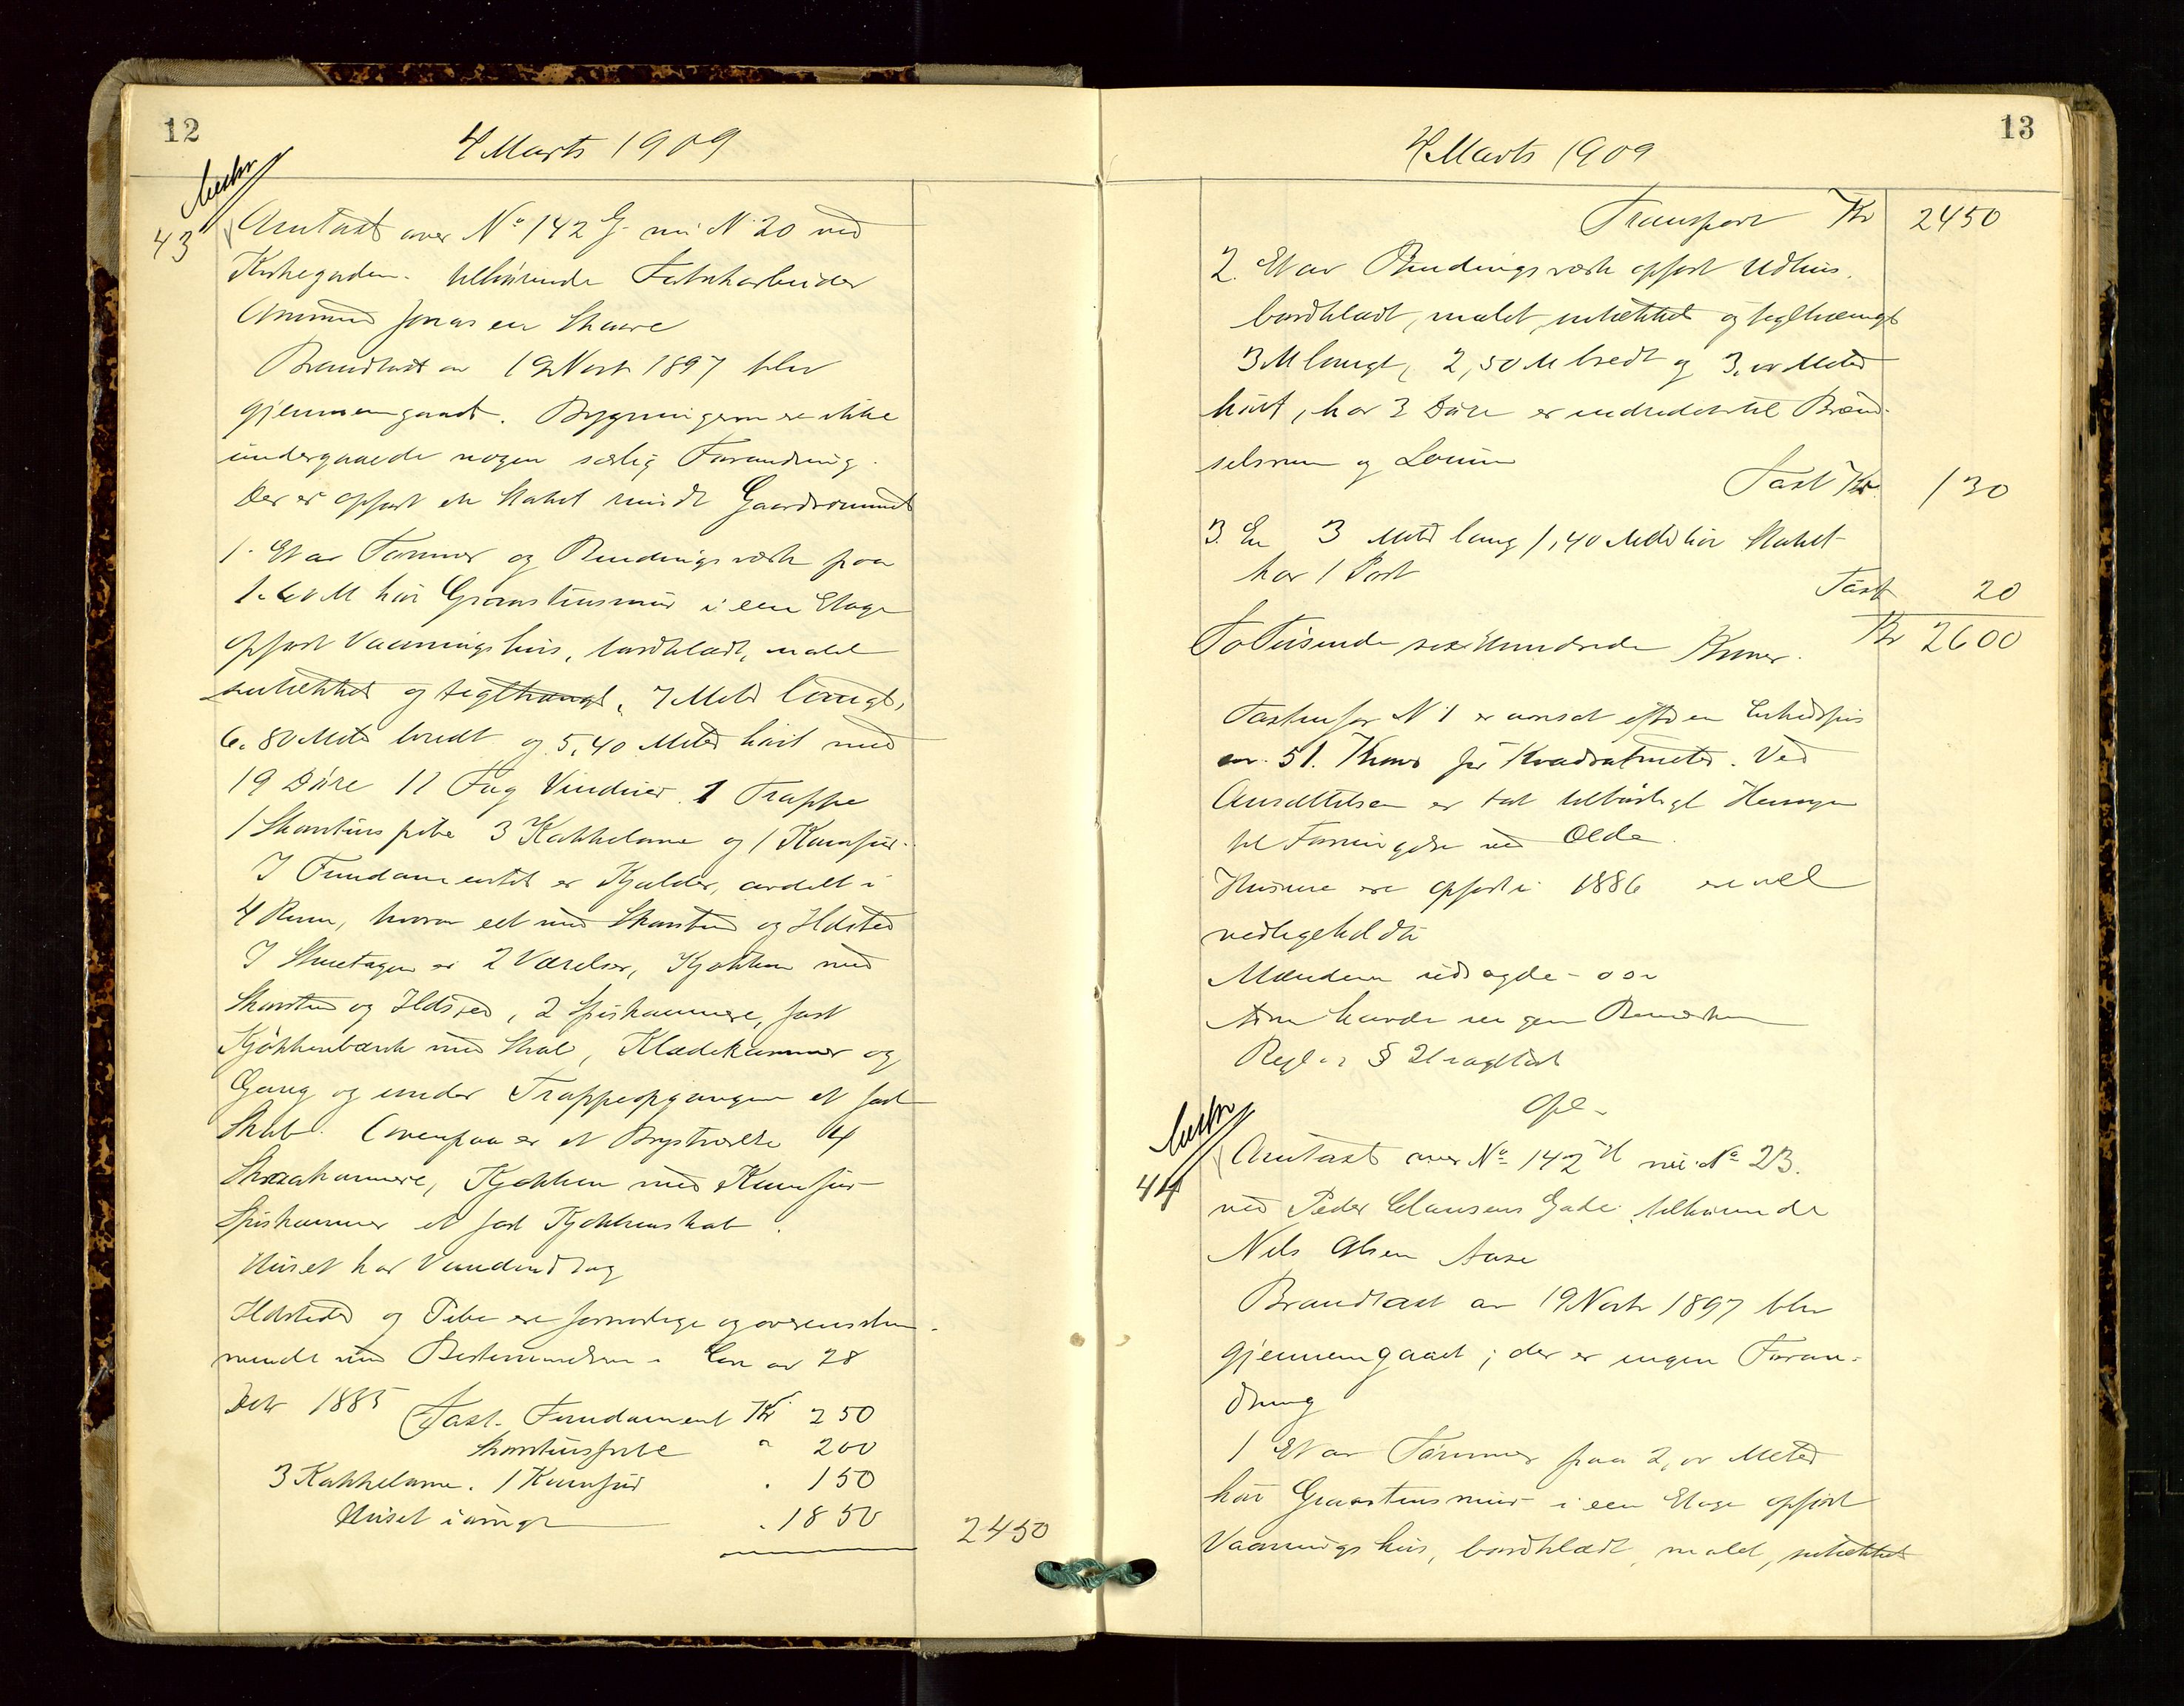 12
4 Marts 1909
43
Omtaxt over No 142 G. nu N 20 ved
Kirkegaden. tilhørende Fabrikarbeider
Ommund Jonasen Skaare
Brandtaxt av 19 Novbr 1897 blev
gjennemgaaet. Bygningerne er ikke
undergaaede nogen særlig Forandring.
Der er opført et Stakit rundt Gaardsrummet
1. Et av Tømmer og Bindingsværk paa
1.60 M høi Graastensmur i een Etage
opført Vaaningshus, bordklædt, malet
sutækket og teglhængt, 7 Meter langt,
6.80 Meter bredt og 5,40 Meter høit med
19 Døre 11 Fag Vinduer 1 Trappe
1 Skorstenspibe 3 Kakkelovne og 1 Komfur.
I Fundamentet er Kjælder, avdelt i
4 Rum, hvorav eet med Skorsten og Ildsted
I Stueetagen er 2 Værelser, Kjøkken med
Skorsten og Ildsted, 2 Spiskammere, fast
Kjøkkenbænk med Skab, Klædekammer og
Gang og under Trappeopgangen et fast
Skab. Ovenpaa er et Kvistværelse 4
Skraakammere, Kjøkken med Komfur
Spiskammer et fast Kjøkkenskab.
Huset har Vandindlæg
Ildsteder og Pibe ere forsvarlige og overensstem-
mende med Bestemmelserne i Lov av 28
Dcbr 1885 Taxt. Fundament Kr 250
Skorstenspibe " 200
3 Kakkelovne. 1 Komfur . 150
Huset iøvrigt . 1850 2450
13
4 Marts 1909
Transport Kr 2450
2. Et av Bindingsværk opført Udhus.
bordklædt, malet, sutækket og teglhængt
3 M langt, 2,50 M bredt og 3,00 Meter
høit, har 3 Døre er indredet til Brænd-
selsrum og
Taxt Kr. 130
3. En 3 Meter lang 1,40 Meter høi Stakit
har 1 Port
Taxt 20
To Tusinde sex Hundrede Kroner. Kr 2600
Taxten for N 1 er ansat efter en Enhedspris
av 51. Kroner pr Kvadratmeter. Ved
Ansættelsen er tat tilbørligt Hensyn
til Forringelse ved Ælde.
Husene ere opført i 1886 ere vel
vedligeholdte
Mændene
havde ingen
Regl.s § iagttat
44
Omtaxt over No 142 H nu No 23.
ved Peder Clausens Gade tilhørende
Nils Olsen Aase
Brandtaxt av 19 Novbr 1897 blev
gjennemgaaet; der er ingen Foran-
dring
1 Et av Tømmer paa 2,00 Meter
høi Graastensmur i een Etage opført
Vaaningshus, bordklædt, malet, sutækket